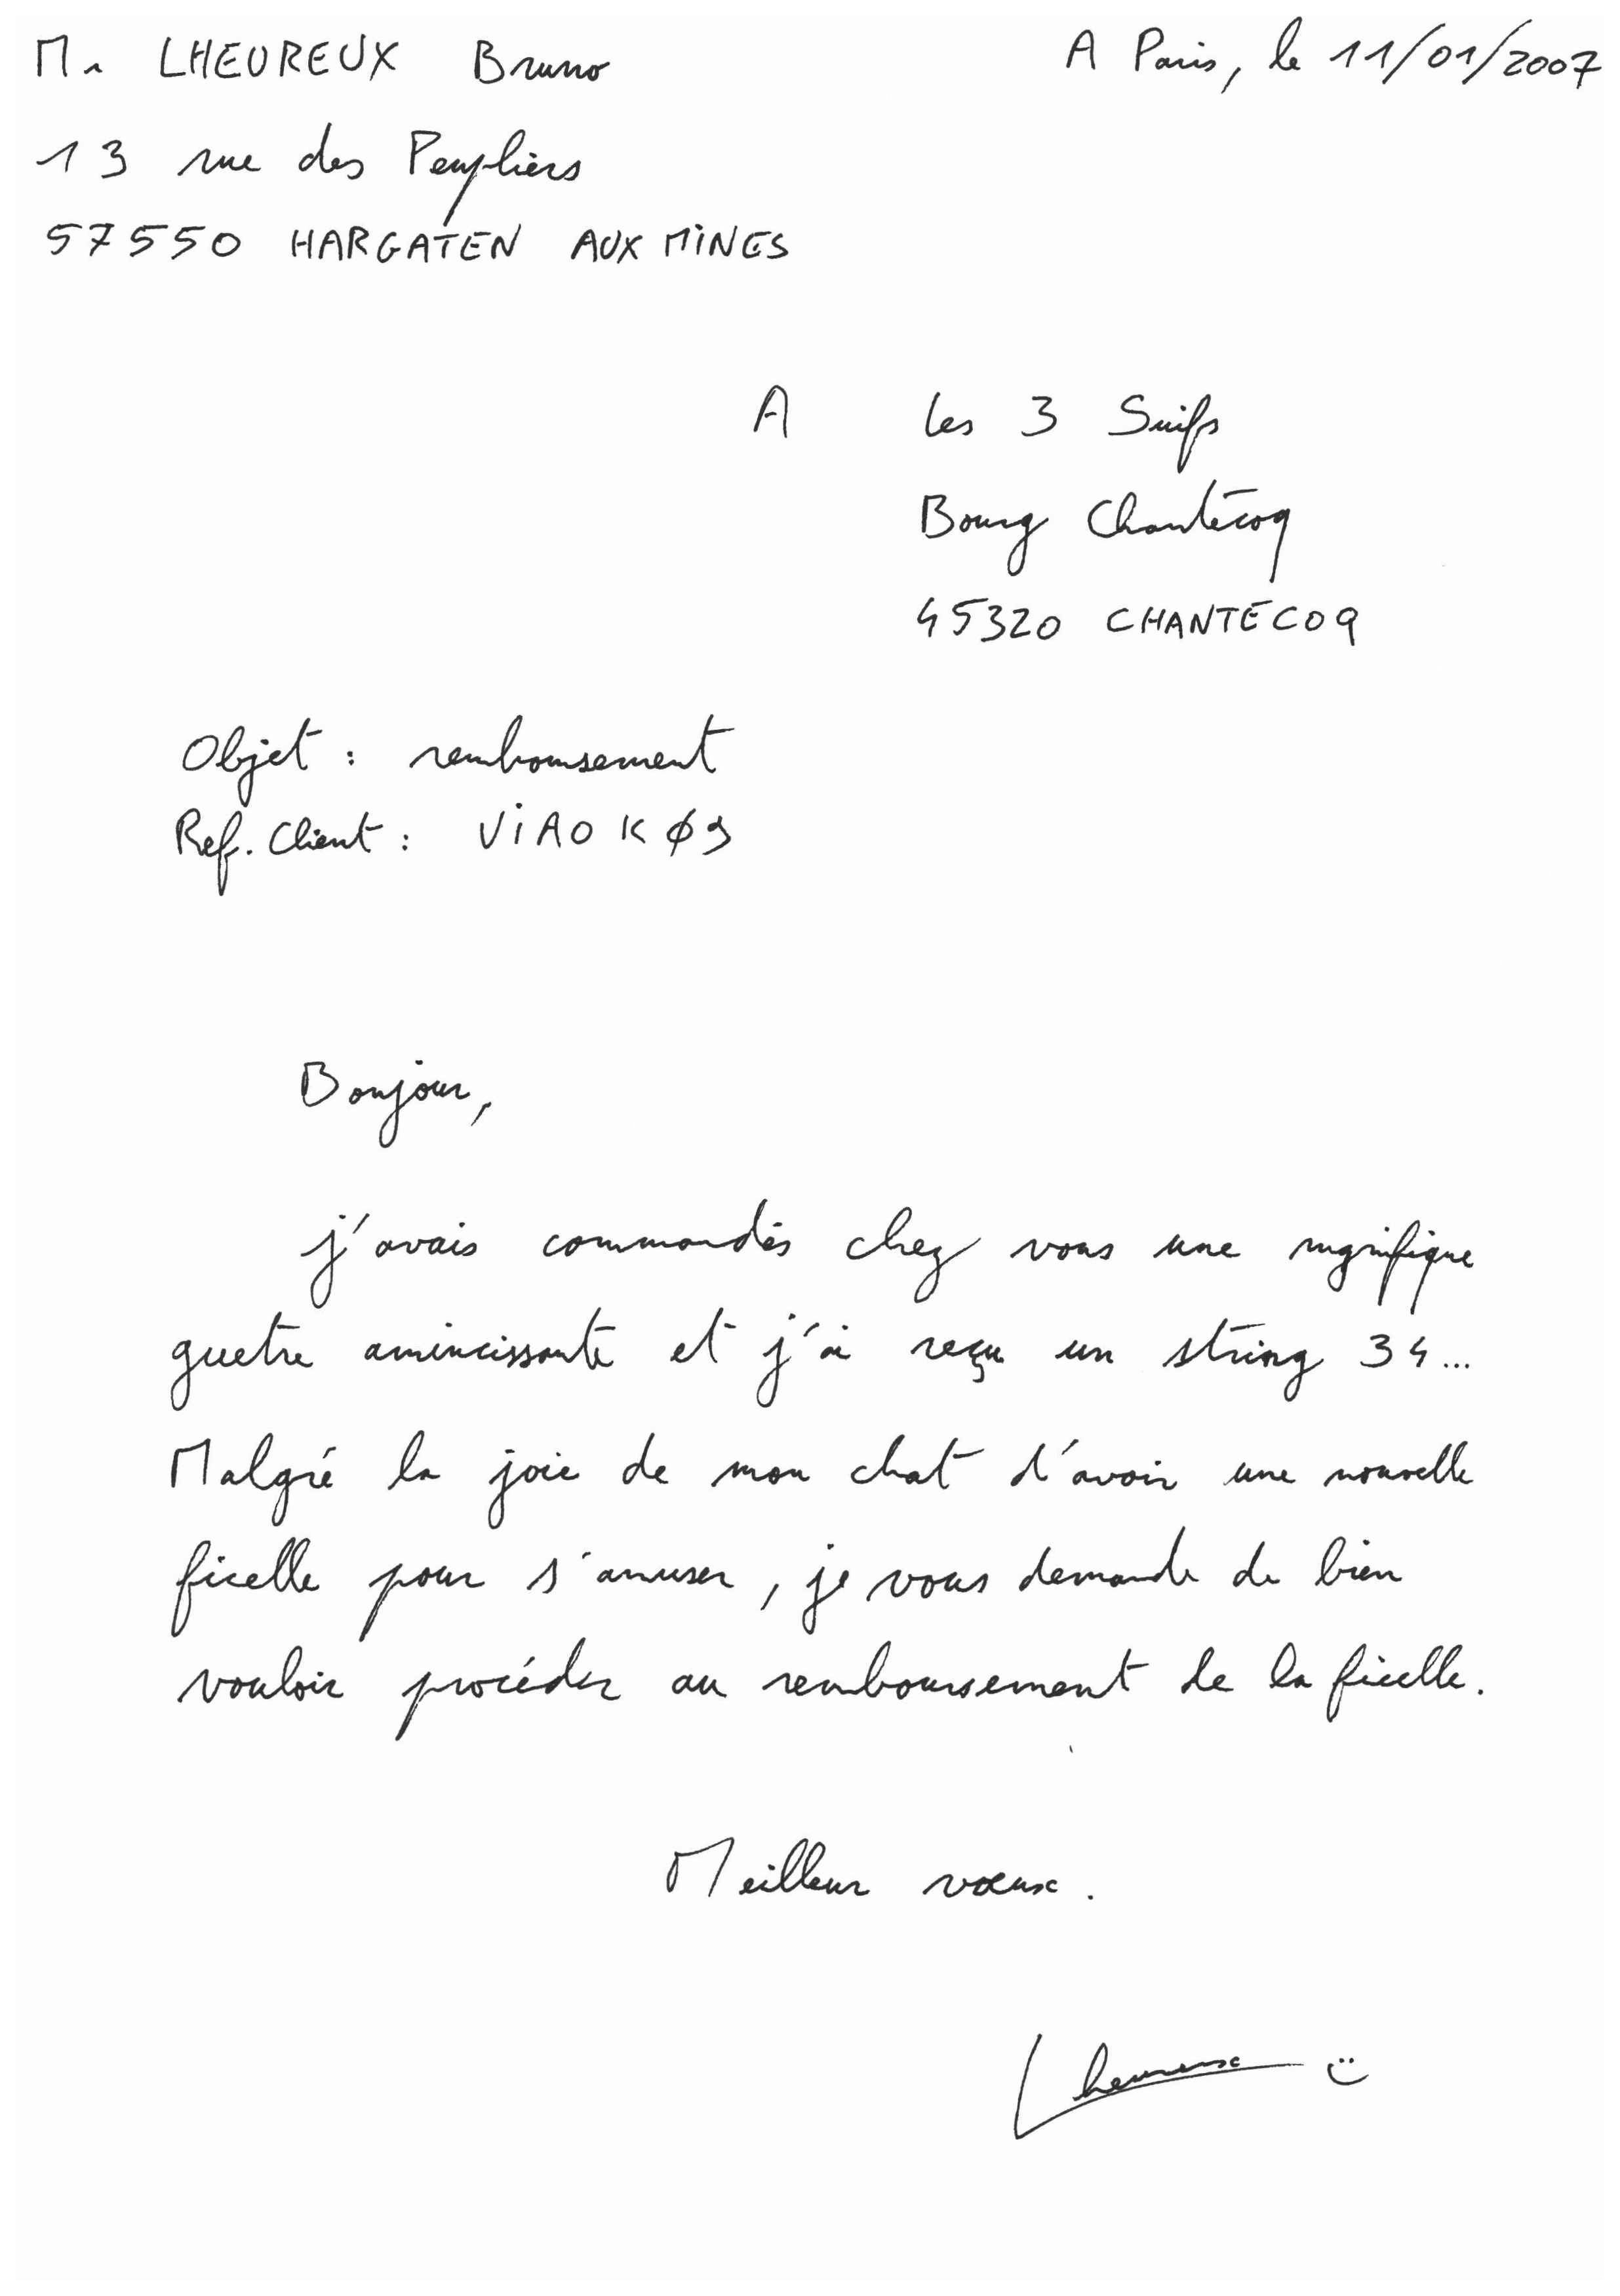 Mr LHEUREUX Bruno
A Paris, le 11/01/2007
13 rue des Peupliers
57550 HARGATEN AUX MINES
A Les 3 Suifs
Bourg Chantecoq
45320 CHANTECOQ
Objet : remboursement
Ref. Client : ViAOKØ9
Bonjour,
j'avais commandés chez vous une mgnifique
guetre amincissante et j'ai reçu un string 34...
Malgré la joie de mon chat d'avoir une nouvelle
ficelle pour s'amuser, je vous demande de bien
vouloir procéder au remboursement de la ficelle.
Meilleur vœux.
Lheureux :)